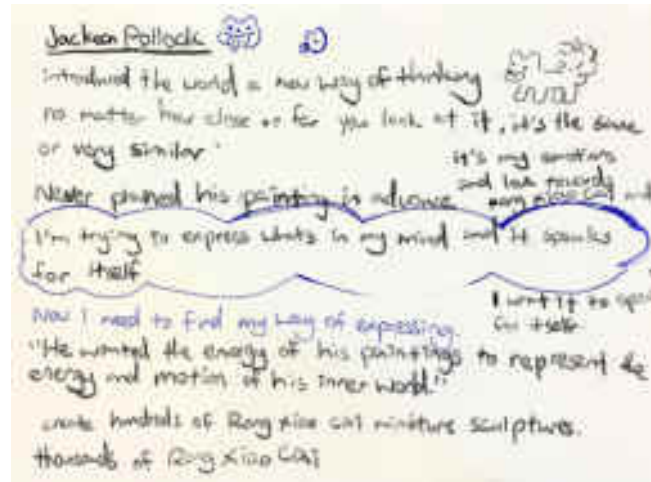 Jackson Pollock
introduced the world a new way of thinking
no matter how close or far you look at it, it's the same
or very similar
it's my emotions
and love towards
Never planned his painting in advance
I'm trying to express whats in my mind and it speaks
for itself
I want it to
for itself
Now I need to find my way of expressing
"He wanted the energy of his paintings to represent the
energy and motion of his inner world."
create hundreds of Rong Xiao Cai miniture sculptures.
thousands of Rong Xiao Cai